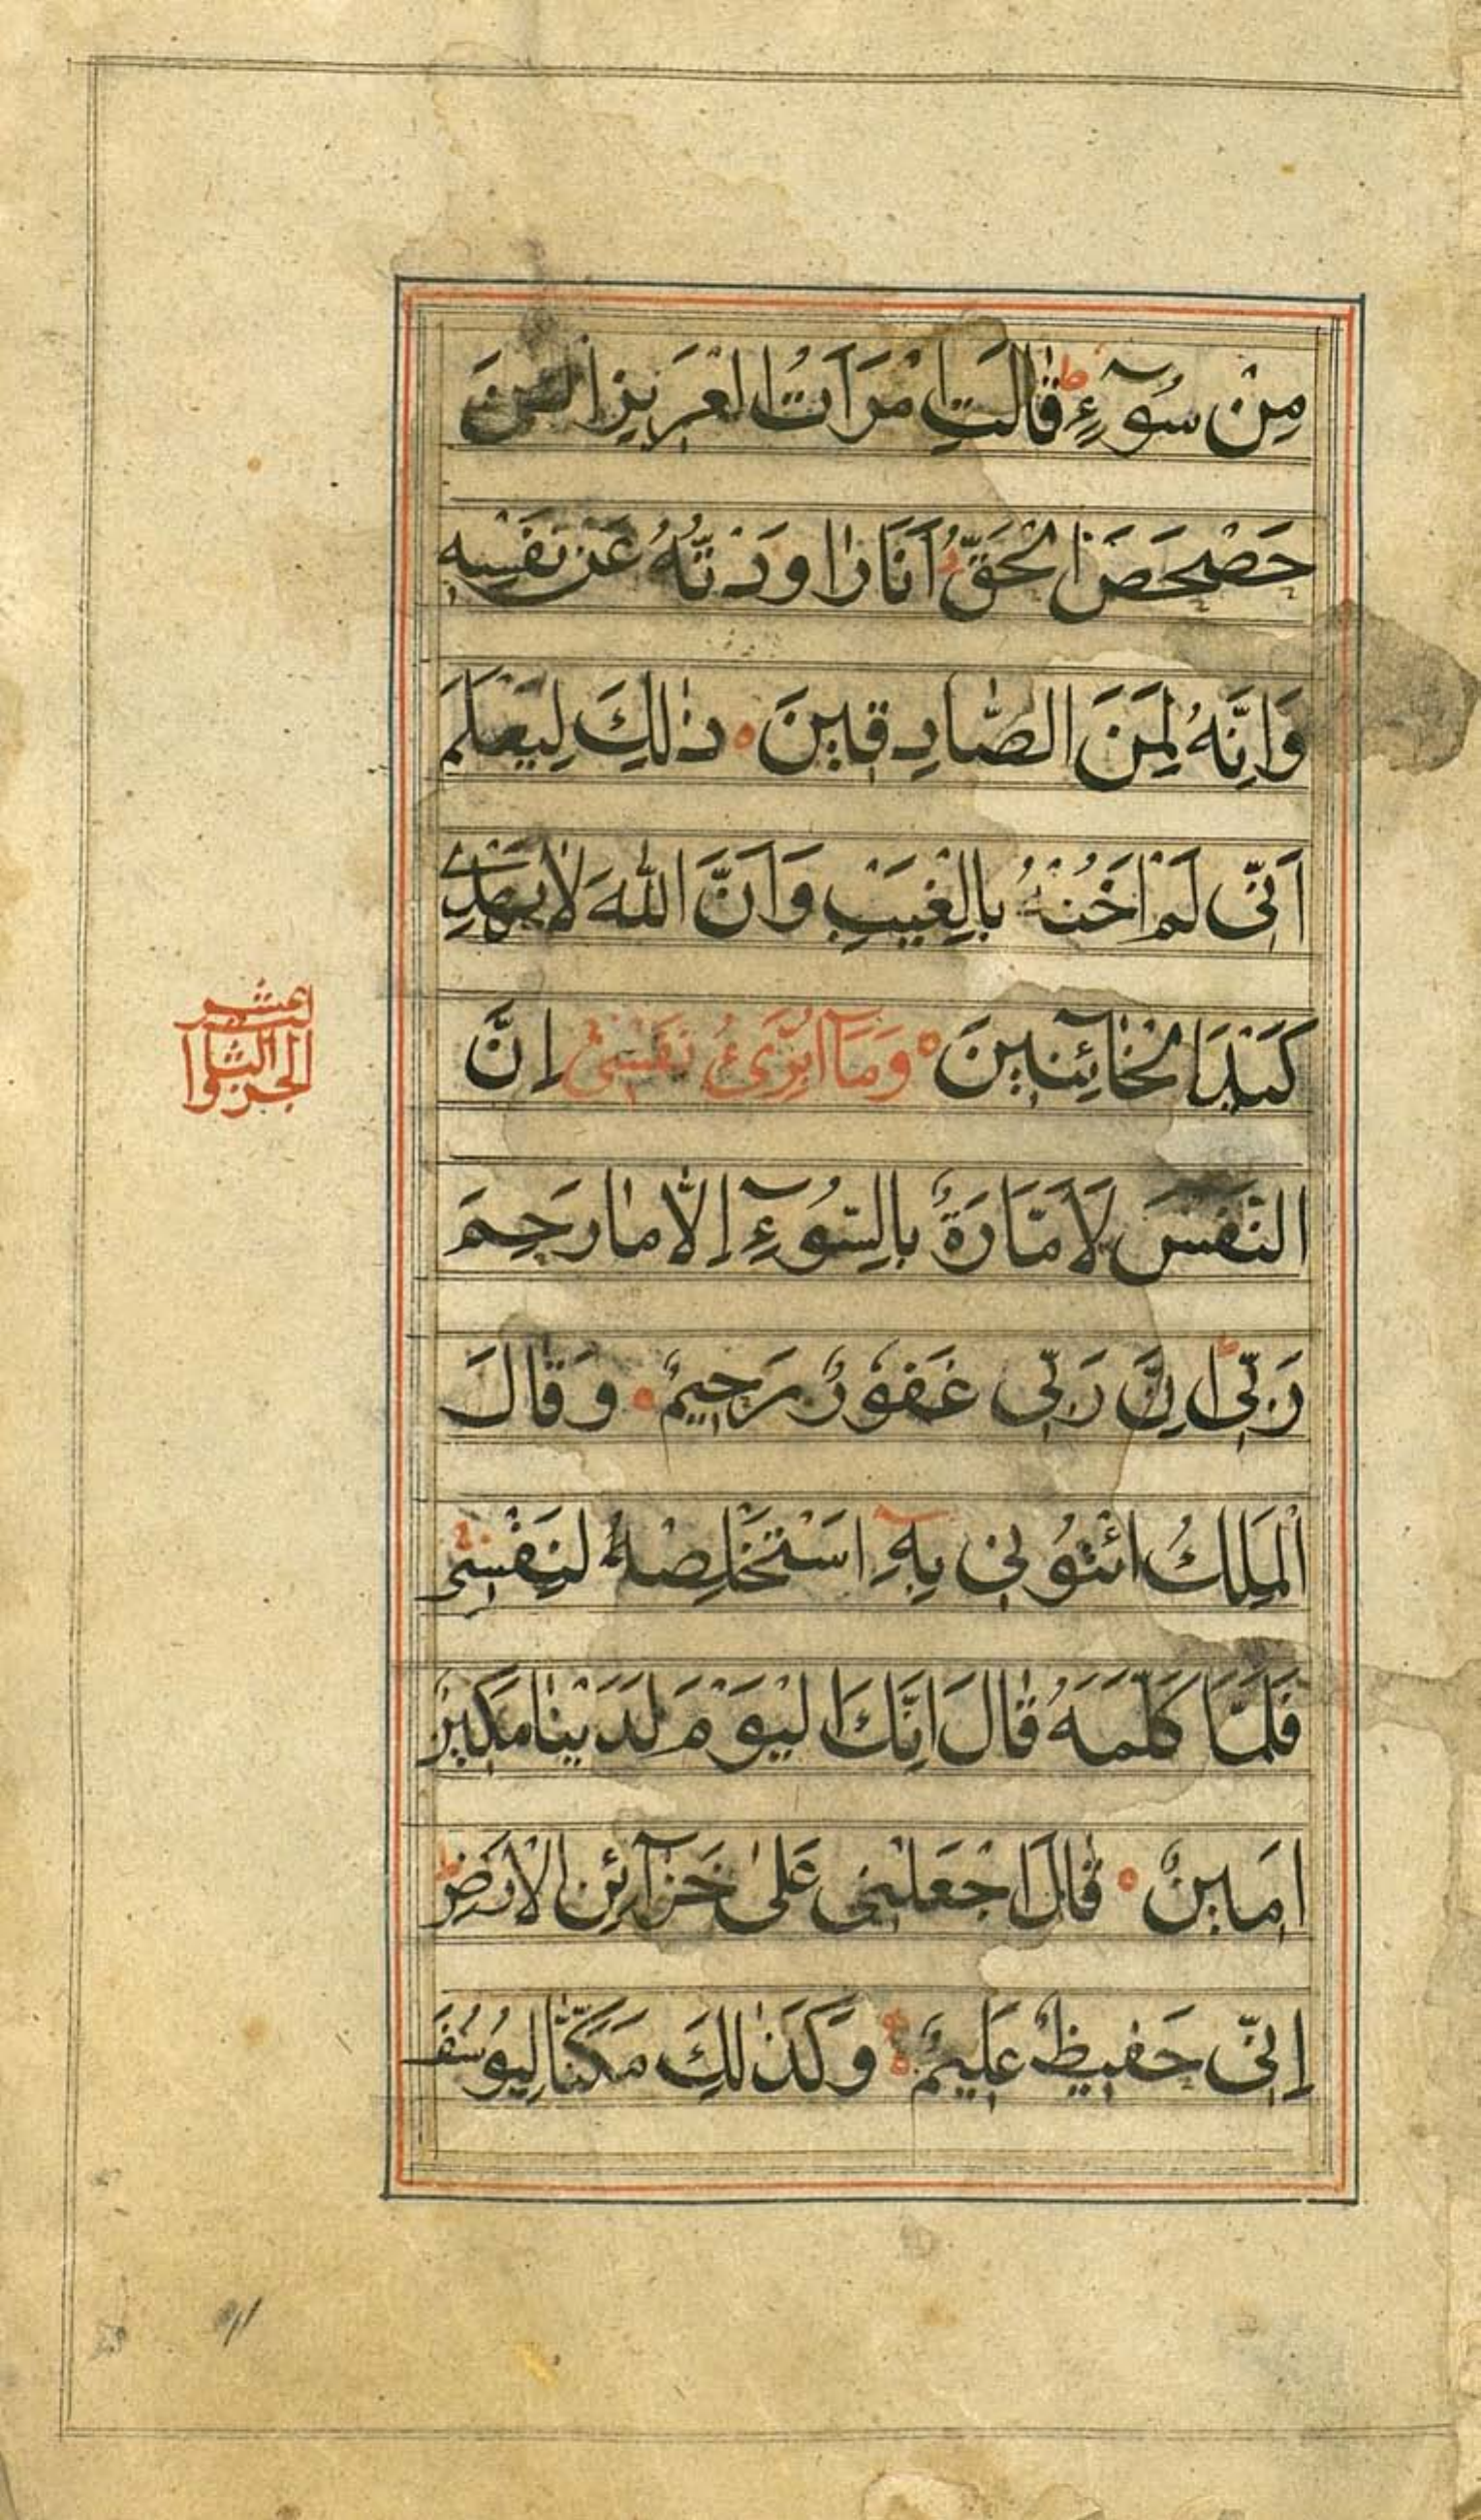 مِنْ سُوۤءٍ ط قٰالَتِ امْرَاَتُ الْعَزِيزِ الْـٰٔنَ
حَصْحَصَ الْحَقُّ اَنَا رٰاوَدْتُهُ عَنْ نَفْسِهِ
وَاِنَّهُ لَمِنَ الصّٰادِقِينَ ه ذٰلِكَ لِيَعْلَمَ
اَنِّى لَمْ اَخُنْهُ بِالْغَيْبِ وَاَنَّ اللّٰهَ لاٰ يَهْدِى
كَيْدَ الْخٰاۤئِنِينَ ه وَمَاۤ اُبَرِّئُ نَفْسِىۤ اِنَّ
النَّفْسَ لَاَمَّارَةٌ بِالسُّوۤءِ اِلاّٰ مٰا رَحِمَ
رَبِّى ط اِنَّ رَبِّى غَفُورٌ رَحِيمٌ ه وَقٰالَ
الْمَلِكُ ائْتُونِى بِهِۤ اَسْتَخْلِصْهُ لِنَفْسِى
فَلَمَّا كَلَّمَهُ قٰالَ اِنَّكَ الْيَوْمَ لَدَيْنٰا مَكِينٌ
اَمِينٌ ه قٰالَ اجْعَلْنِى عَلىٰ خَزٰاۤئِنِ الْاَرْضِ ط
اِنِّى حَفِيظٌ عَلِيمٌ ه وَكَذٰلِكَ مَكَّنّٰا لِيُوسُفَ
الجزؤ الثالث
عشر